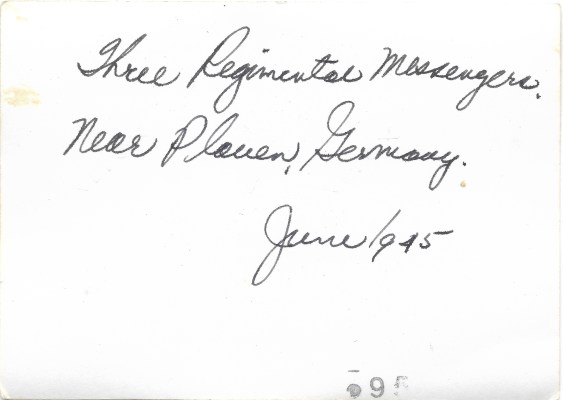 Three Regimental Messengers.
Near Plauen, Germany.
June 1945
95